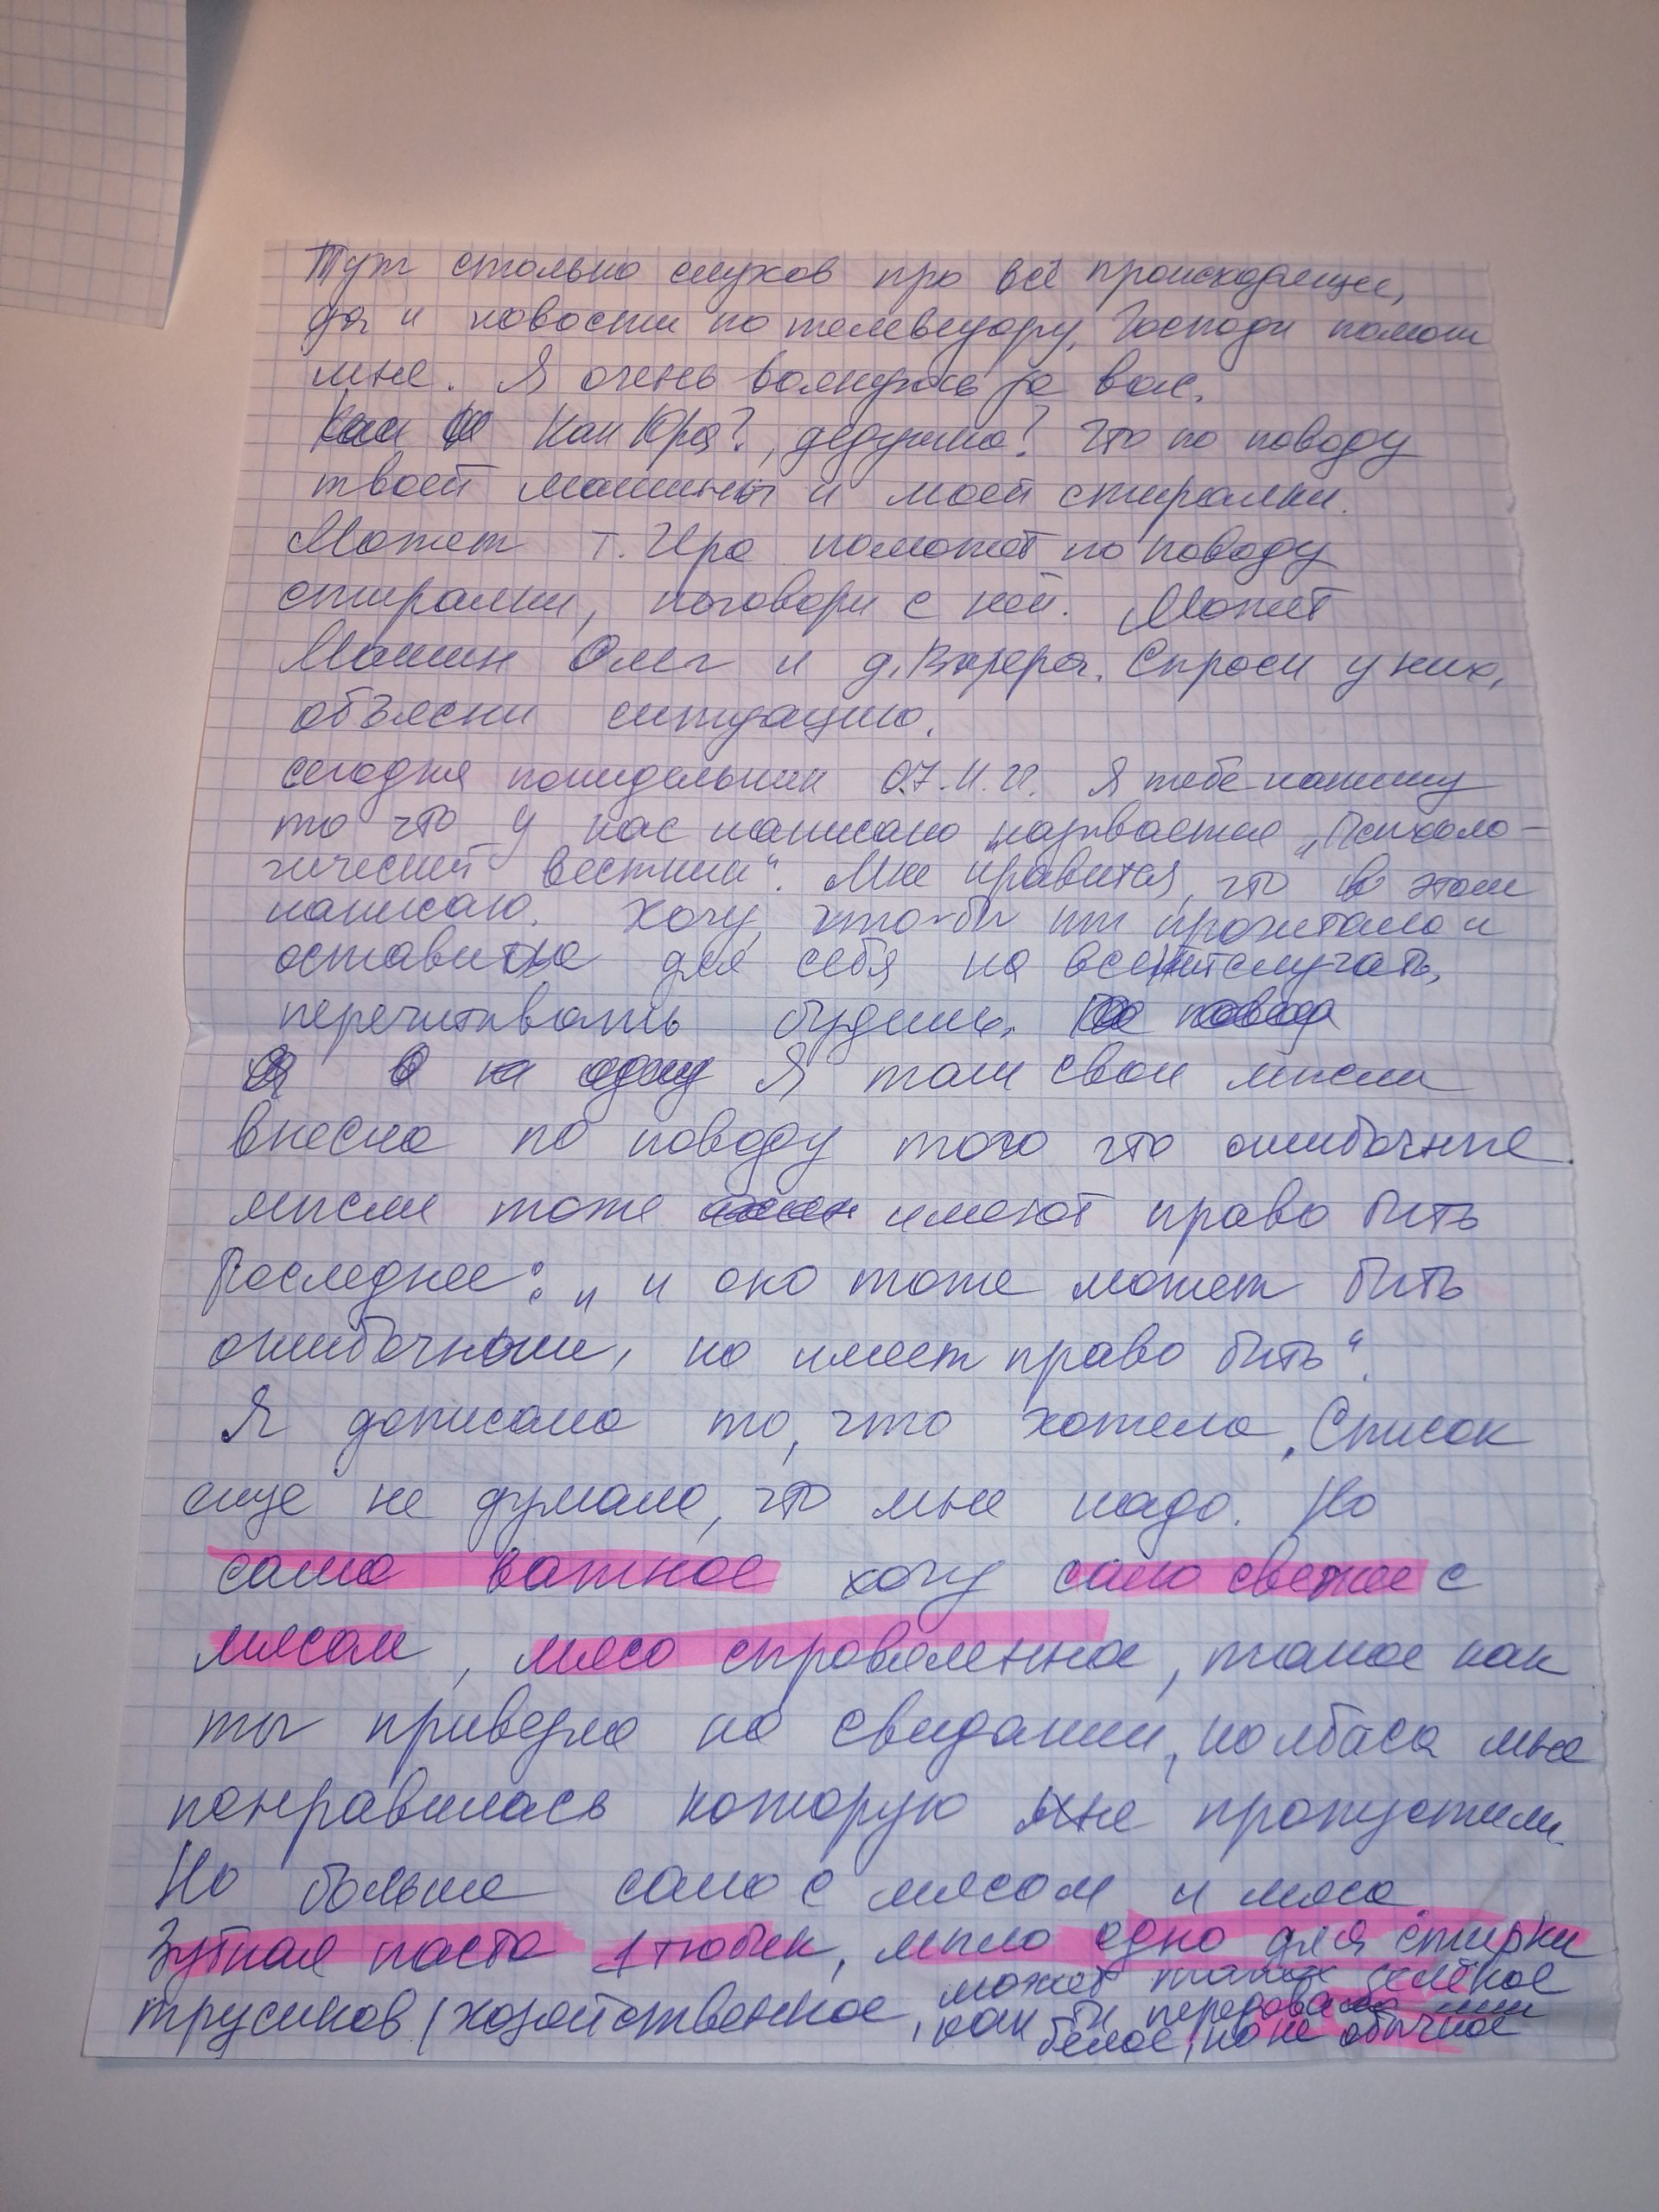 Тут столько слухов про всё происходящее,
да и новости по телевизору, Господи помоги
мне. Я очень волнуюсь за вас.
Как Юра?, дедушка? Что по поводу
твоей машины и моей стиралки.
Может т. Ира поможет по поводу
стиралки, поговори с ней. Может
Машин Олег и д. Валера. Спроси у них,
объясни ситуацию.
сегодня понидельник 07.11.22. Я тебе напишу
то что у нас написано называется „Психоло-
гический вестник“. Мне нравится, что в этом
написано. Хочу, что-бы ты прочитала и
оставила для себя на всякий случай,
перечитывать будешь.
Я там свои мысли
внесла по поводу того что ошибочные
мысли тоже имеют право быть
Последнее: „и оно тоже может быть
ошибочным, но имеет право быть“.
Я дописала то, что хотела. Список
еще не думала, что мне надо. Но
само важное хочу сало свежее с
мясом, мясо справяленное, такое как
ты привезла на свидании, колбаса мне
понравилась которую мне пропустили.
Но больше сало с мясом и мясо.
Зубная паста 1 тюбик, мыло одно для стирки
трусиков (хозяйственное, может такое зелёное
как ты передавала или
белое, но не обычное